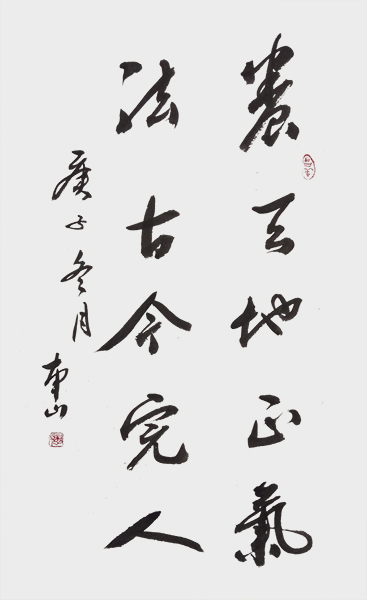 養天地正氣
法古今完人
庚子冬月